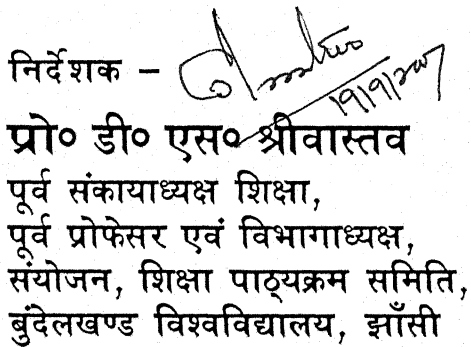 निर्देशक –
19/9/2007
प्रो० डी० एस० श्रीवास्तव
पूर्व संकायाध्यक्ष शिक्षा,
पूर्व प्रोफेसर एवं विभागाध्यक्ष,
संयोजन, शिक्षा पाठ्यक्रम समिति,
बुंदेलखण्ड विश्वविद्यालय, झाँसी